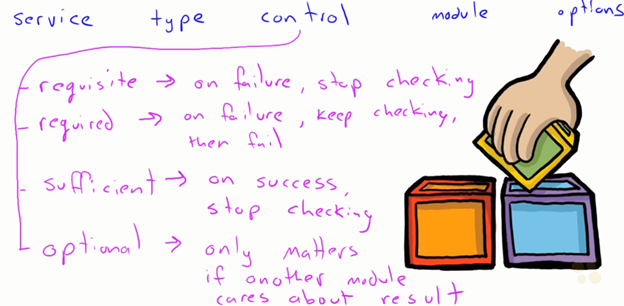 service type control module options
requisite → on failure, stop checking
required → on failure, keep checking,
then fail
sufficient → on success,
stop checking
optional → only matters
if another module
cares about result